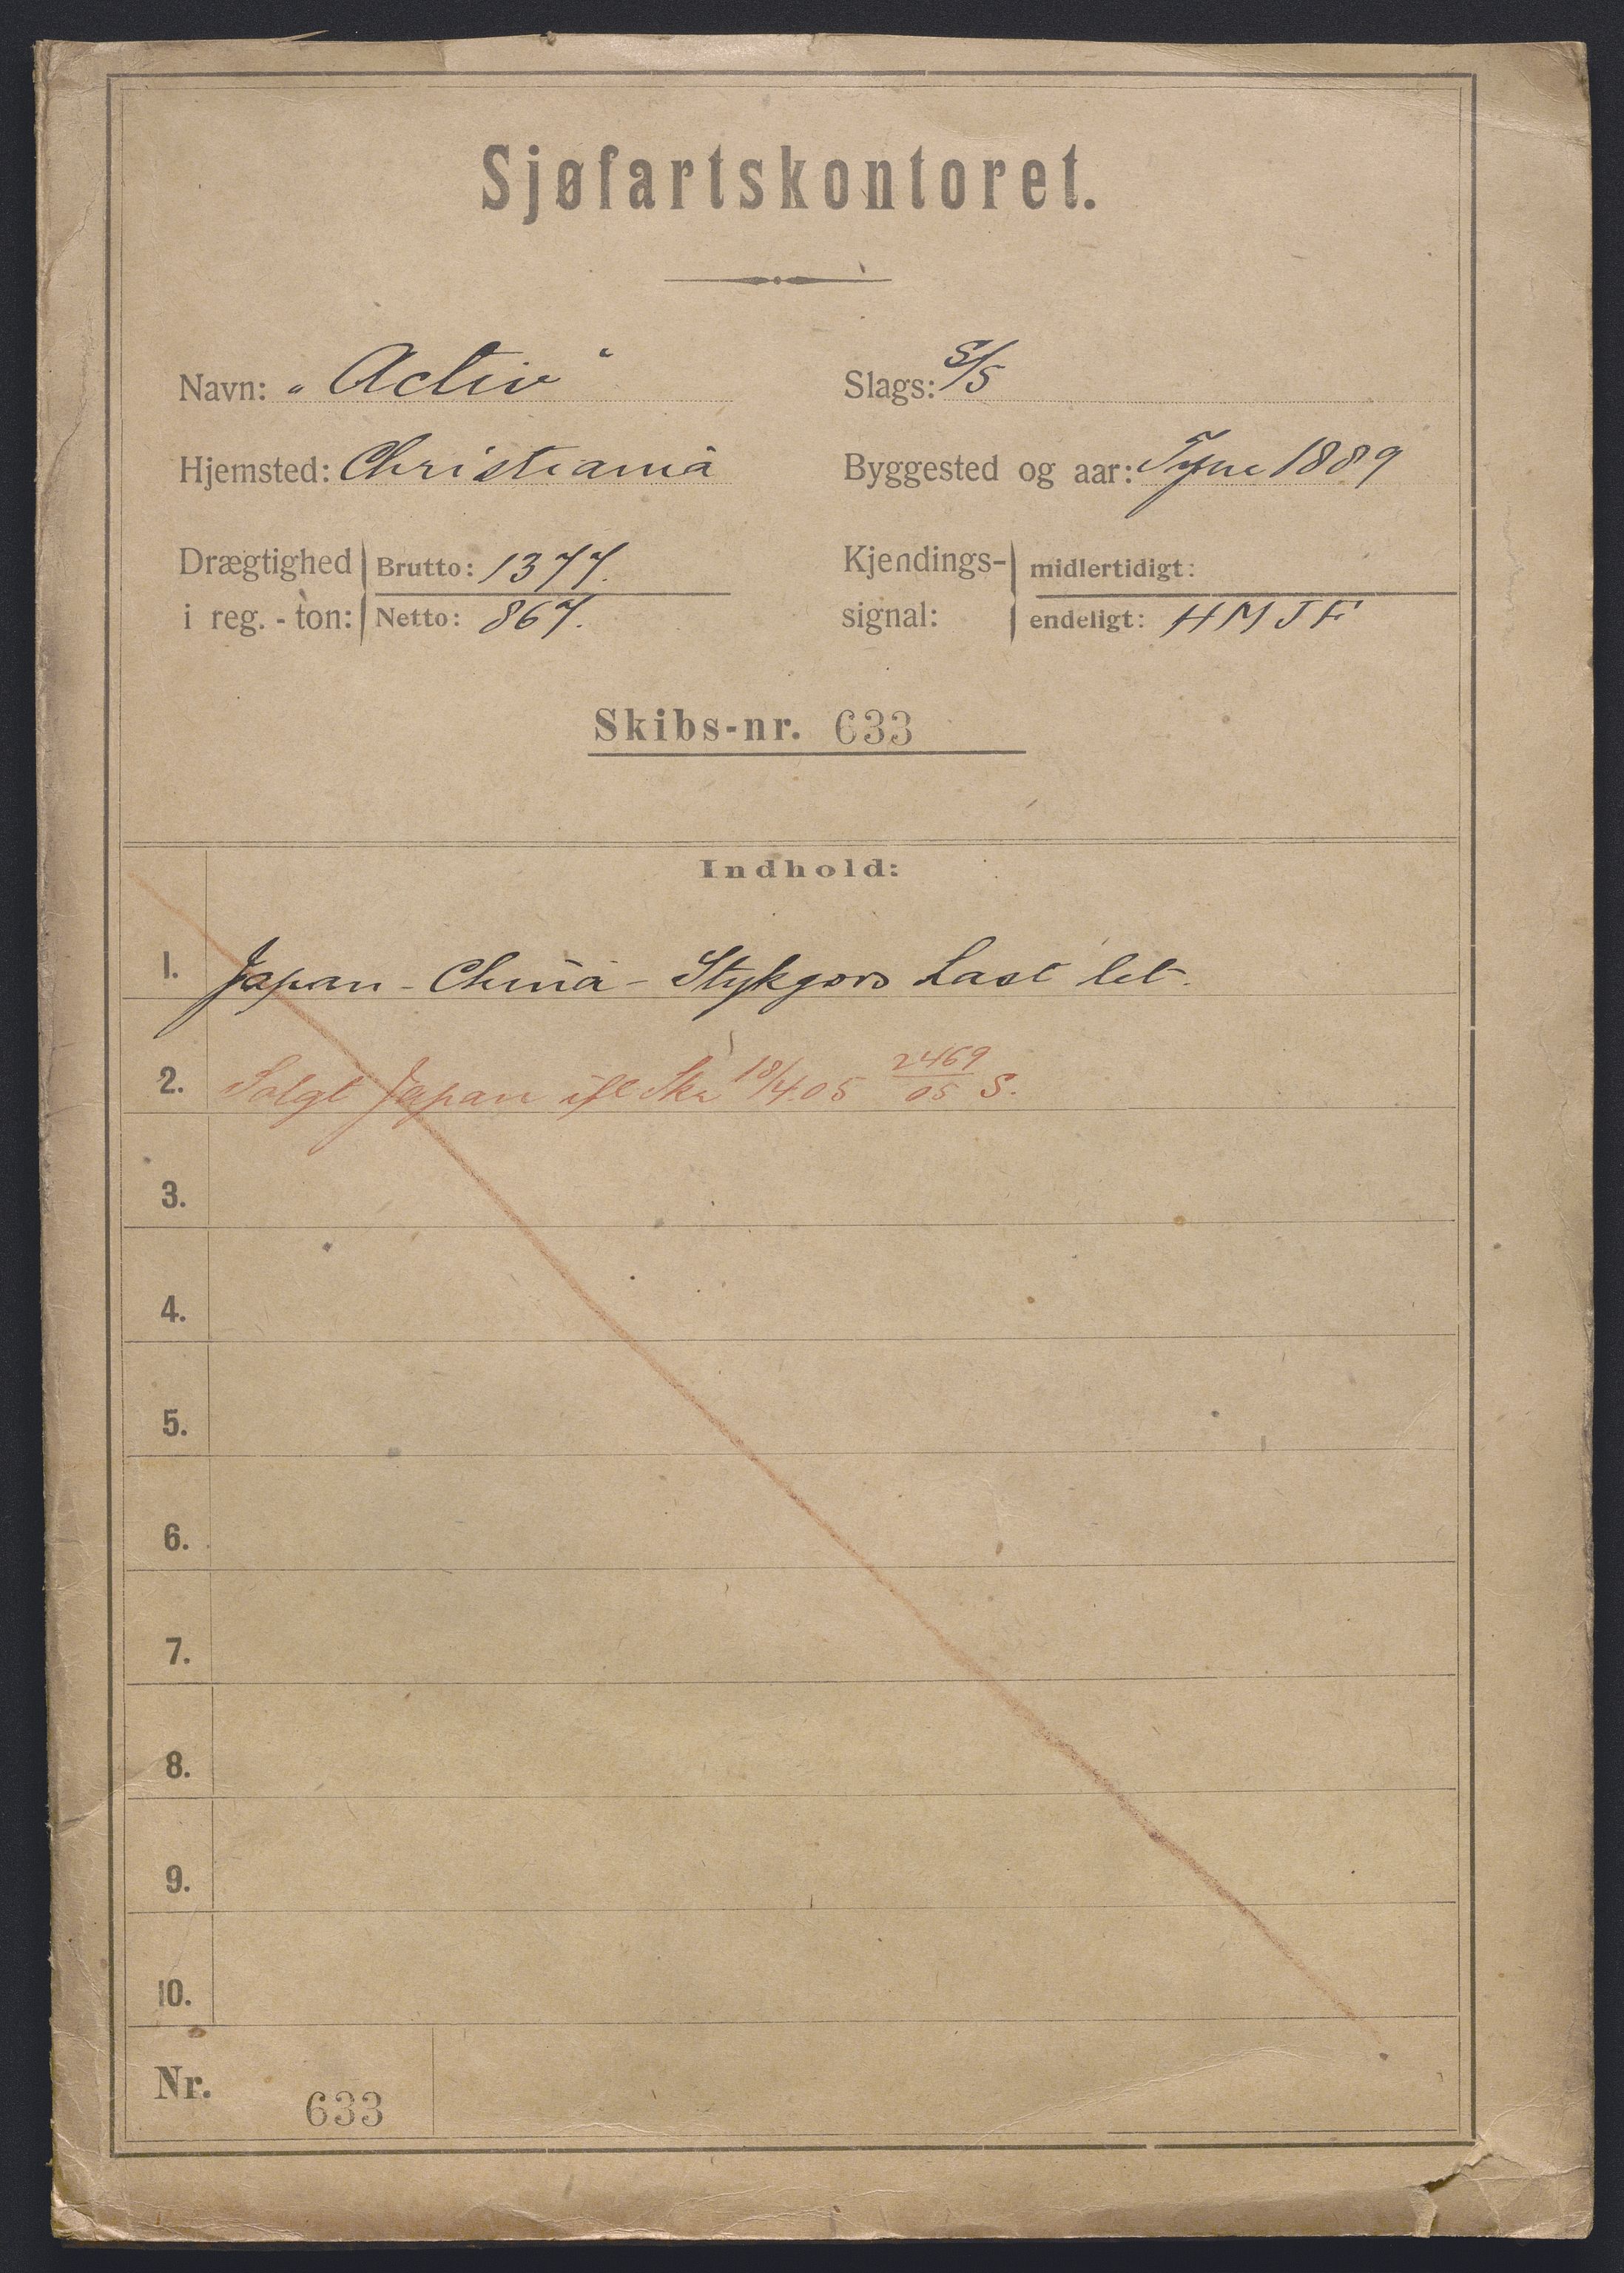 Sjøfartskontoret.
Navn: „Activ“
Slags: S/S
Hjemsted: Christiania
Byggested og aar: Tyne 1889
Drægtighed i reg.-ton: Brutto: 1377.
Netto: 867.
Kjendings-signal: midlertidigt:
endeligt: HMJF
Skibs-nr. 633
Indhold:
1. Japan - China - Stykgods Last let.
2. Solgt Japan ifl Skr 18/4.05 2469/05 S.
3.
4.
5.
6.
7.
8.
9.
10.
Nr. 633